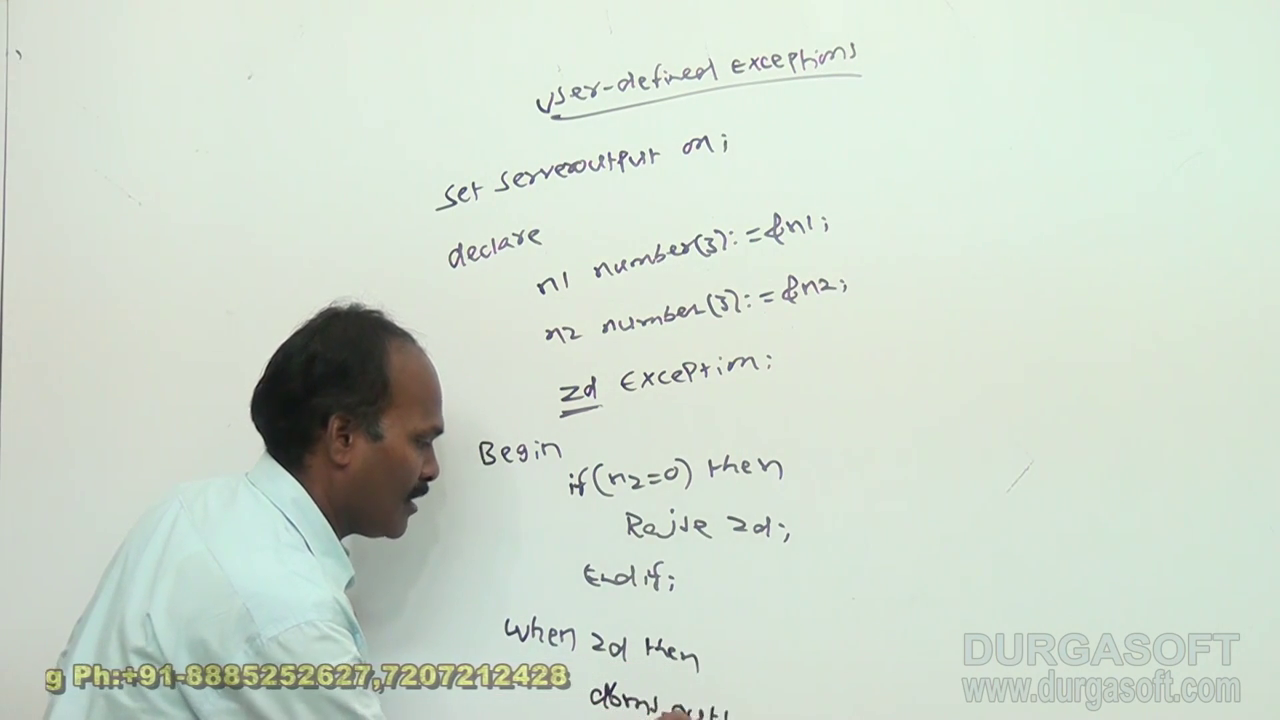 User-defined Exceptions
set serveroutput on;
declare
n1 number(3):=&n1;
n2 number(3):=&n2;
zd Exception;
Begin
if(n2=0) then
Raise zd;
End if;
when zd then
g Ph:+91-8885252627,7207212428
DURGASOFT
www.durgasoft.com